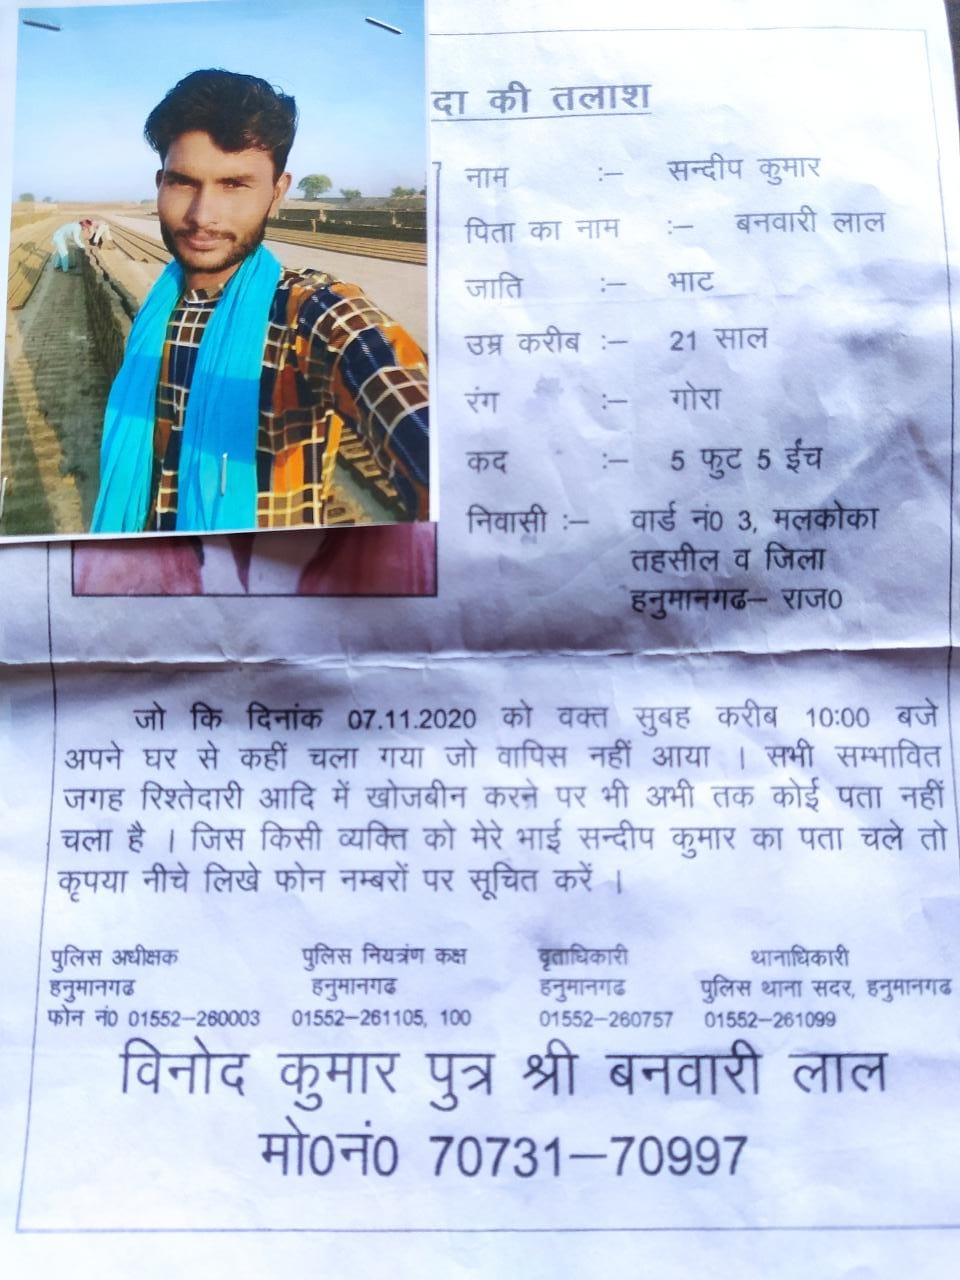 दा की तलाश
नाम :– सन्दीप कुमार
पिता का नाम :– बनवारी लाल
जाति :– भाट
उम्र करीब :– 21 साल
रंग :– गोरा
कद :– 5 फुट 5 ईंच
निवासी :– वार्ड नं0 3, मलकोका
तहसील व जिला
हनुमानगढ– राज0
जो कि दिनांक 07.11.2020 को वक्त सुबह करीब 10:00 बजे
अपने घर से कहीं चला गया जो वापिस नहीं आया । सभी सम्भावित
जगह रिश्तेदारी आदि में खोजबीन करने पर भी अभी तक कोई पता नहीं
चला है । जिस किसी व्यक्ति को मेरे भाई सन्दीप कुमार का पता चले तो
कृपया नीचे लिखे फोन नम्बरों पर सूचित करें ।
पुलिस अधीक्षक पुलिस नियत्रंण कक्ष वृताधिकारी थानाधिकारी
हनुमानगढ हनुमानगढ हनुमानगढ पुलिस थाना सदर, हनुमानगढ
फोन नं0 01552–260003 01552–261105, 100 01552–260757 01552–261099
विनोद कुमार पुत्र श्री बनवारी लाल
मो0नं0 70731–70997